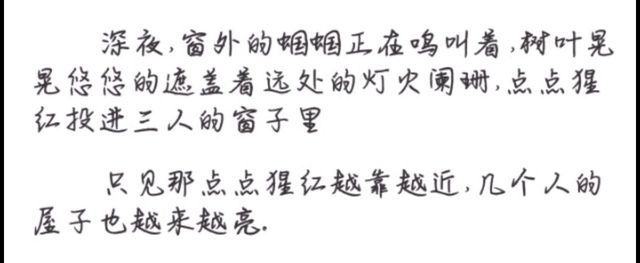 深夜,窗外的蝈蝈正在鸣叫着,树叶晃
晃悠悠的遮盖着远处的灯火阑珊,点点猩
红投进三人的窗子里
只见那点点猩红越靠越近,几个人的
屋子也越来越亮.